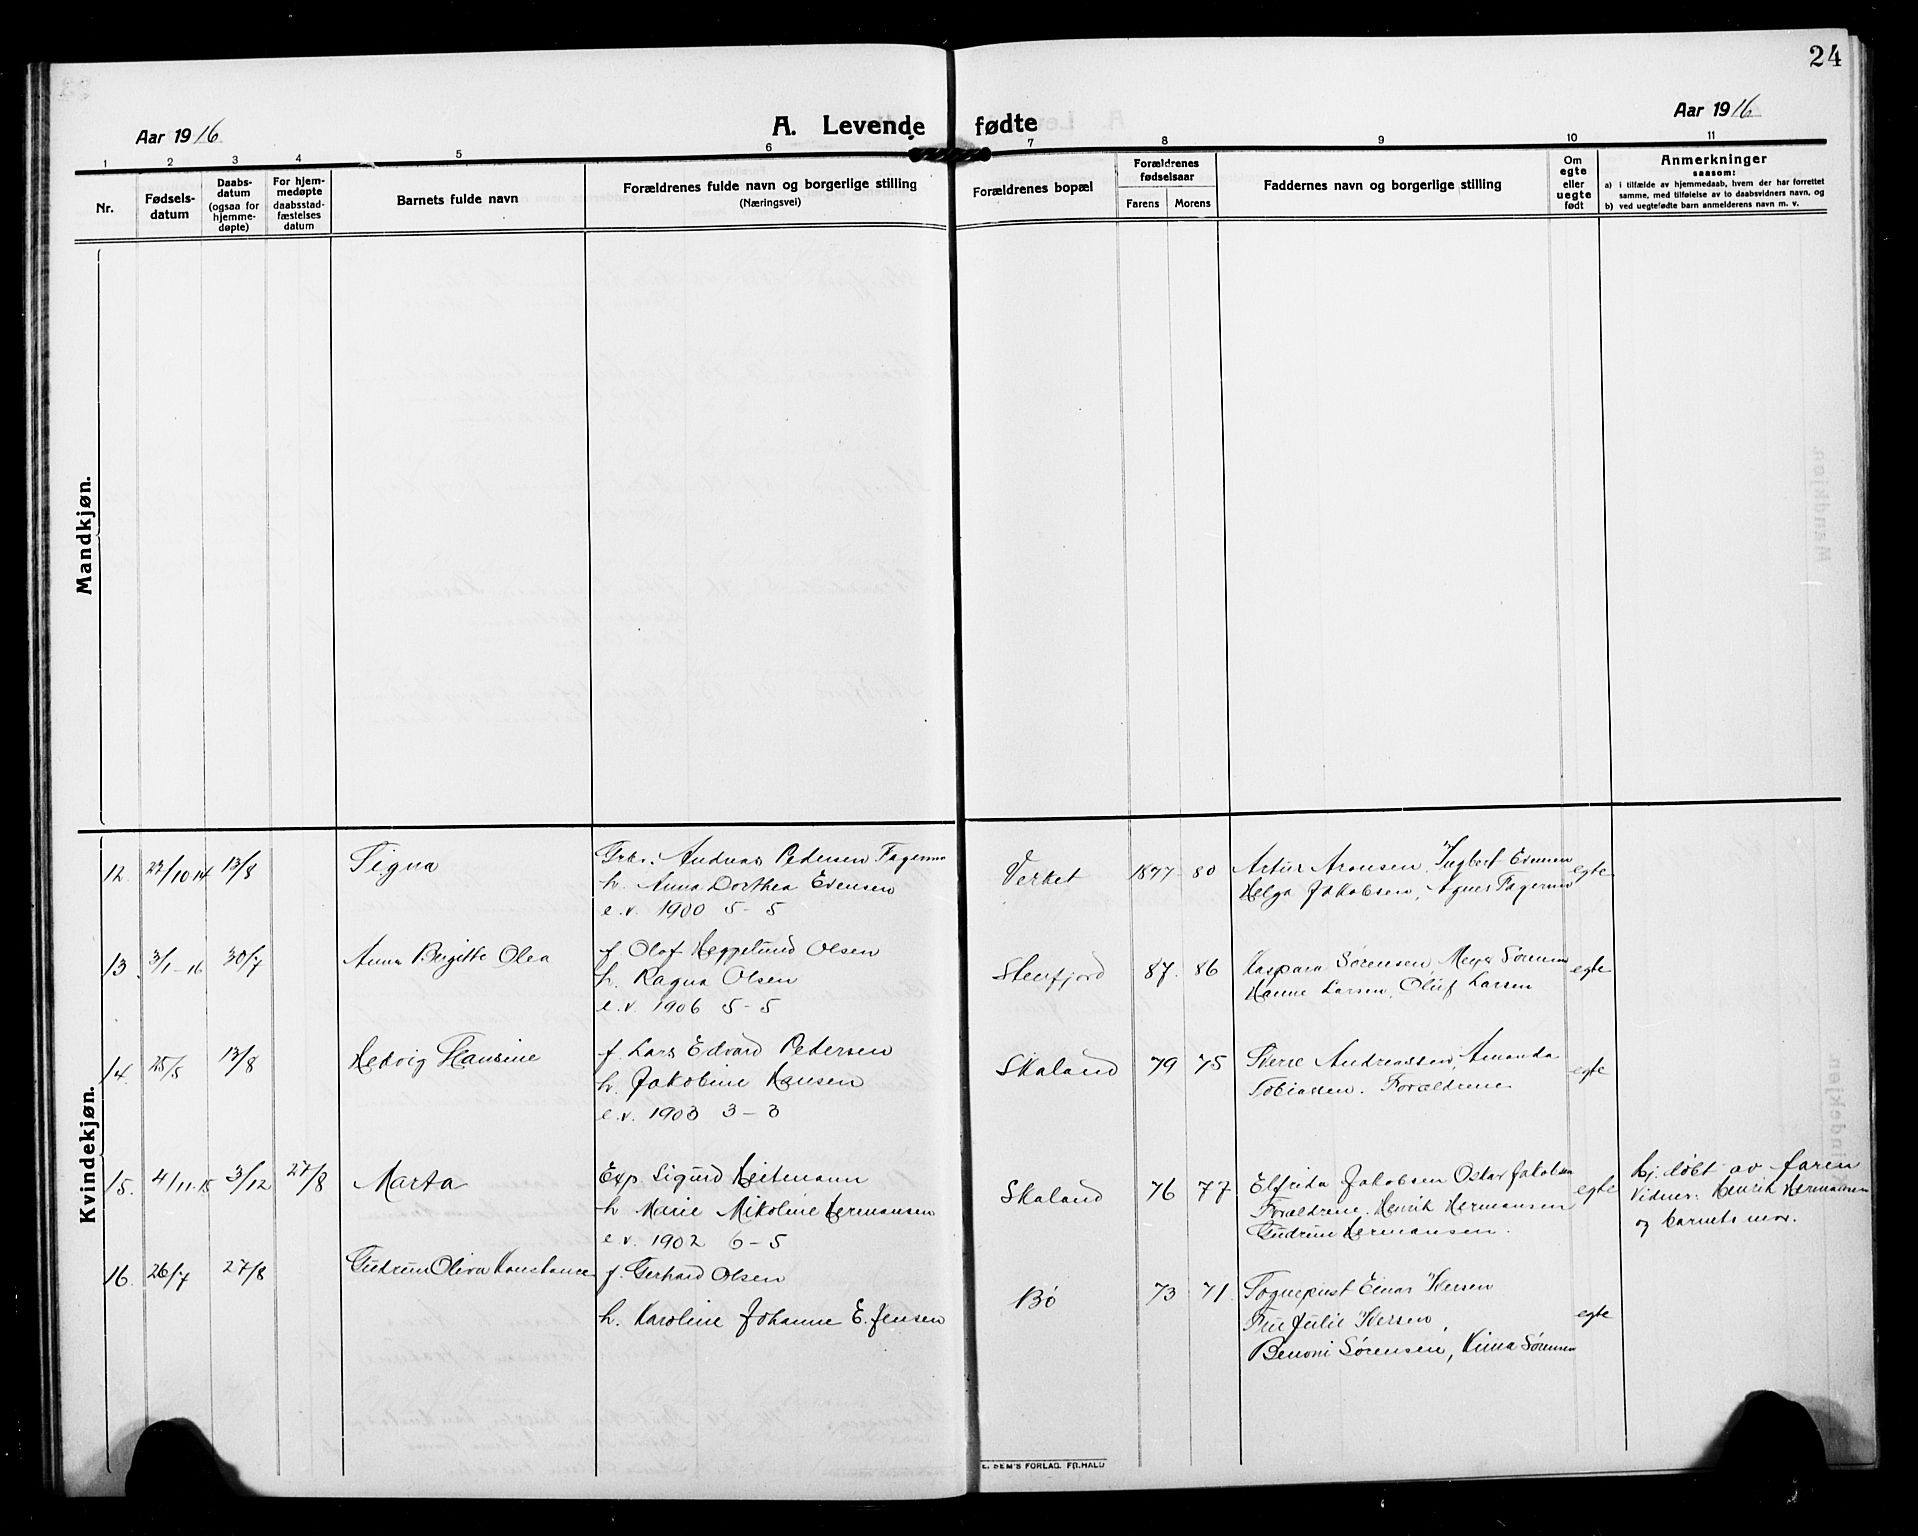 24
Aar 1916
A. Levende fødte
Aar 1916
1 2 3 4 5 6 7 8 9 10 11
Nr.
Fødsels-
datum
Daabs-
datum
(ogsaa for
hjemme-
døpte)
For hjem-
medøpte
daabsstad-
fæstelses
datum
Barnets fulde navn
Forældrenes fulde navn og borgerlige stilling
(Næringsvei)
Forældrenes bopæl
Forældrenes
fødselsaar
Farens Morens
Faddernes navn og borgerlige stilling
Om
egte
eller
uegte
født
Anmerkninger
saasom:
a) i tilfælde av hjemmedaab, hvem der har forrettet
samme, med tilføielse av to daabsvidners navn, og
b) ved uegtefødte barn anmelderens navn m. v.
Mandkjøn.
Kvindekjøn.
12. 22/10 14 13/8 Signa Grbr. Andreas Pedersen Fagermo Verket 1877 80 Artur Aronsen, Ingbert Evensen egte
h. Anna Dorthea Evensen Helga Jakobsen, Agnes Fagermo
e.v. 1900 5-5
13. 3/1-16 30/7 Anna Birgitte Olea f. Olof Heggelund Olsen Stenfjord 87. 86 Kaspara Sørensen, Meyer Sørensen egte
h. Ragna Olsen Hanne Larsen, Oluf Larsen
e.v. 1906 5-5
14. 25/5 13/8 Hedvig Hansine f. Lars Edvard Pedersen Skaland 79 75 Sverre Andreassen, Amanda egte
h. Jakobine Hansen Tobiassen. Forældrene
e.v. 1903 3-3
15. 4/11-15 3/12 27/8 Marta Exp. Sigurd Heitmann Skaland 76 77 Elfrida Jakobsen Oskar Jakobsen egte Hj. døbt av faren
h. Marie Nikoline Hermansen Forældrene. Henrik Hermansen Vidner: Henrik Hermansen
e.v. 1902 6-5 Gudrun Hermansen. og barnets mor.
16. 26/7 27/8 Gudrun Oliva Konstance f. Gerhard Olsen Bø 73 71 Sogneprest Einar Iversen egte
h. Karoline Johanne E. Jensen Fru Julie Iversen,
Benoni Sørensen, Kima Sørensen
E. SEM'S FORLAG. FR.HALD